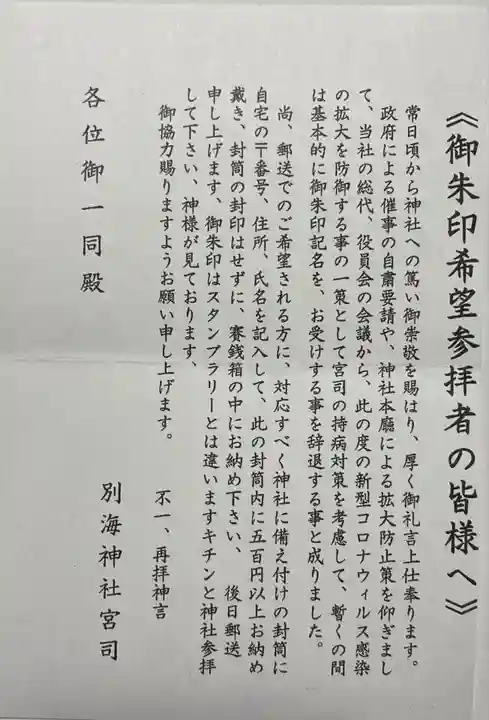 《御朱印希望参拝者の皆様へ》
常日頃から神社への篤い御崇敬を賜はり、厚く御礼言上仕奉ります。
政府による催事の自粛要請や、神社本廳による拡大防止策を仰ぎまし
て、当社の総代、役員会の会議から、此の度の新型コロナウィルス感染
の拡大を防御する事の一策として宮司の持病対策を考慮して、暫くの間
は基本的に御朱印記名を、お受けする事を辞退する事と成りました。
尚、郵送でのご希望される方に、対応すべく神社に備え付けの封筒に
自宅の〒番号、住所、氏名を記入して、此の封筒内に五百円以上お納め
戴き、封筒の封印はせずに、賽銭箱の中にお納め下さい、 後日郵送
申し上げます、御朱印はスタンプラリーとは違いますキチンと神社参拝
して下さい、神様が見ております、
御協力賜りますようお願い申し上げます。
不一、再拝神言
別海神社宮司
各位御一同殿